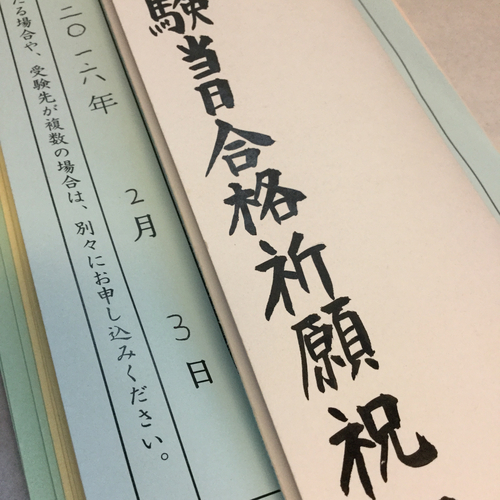 験当日合格祈願祝
二〇一六年 2月 3日
る場合や、受験先が複数の場合は、別々にお申し込みください。